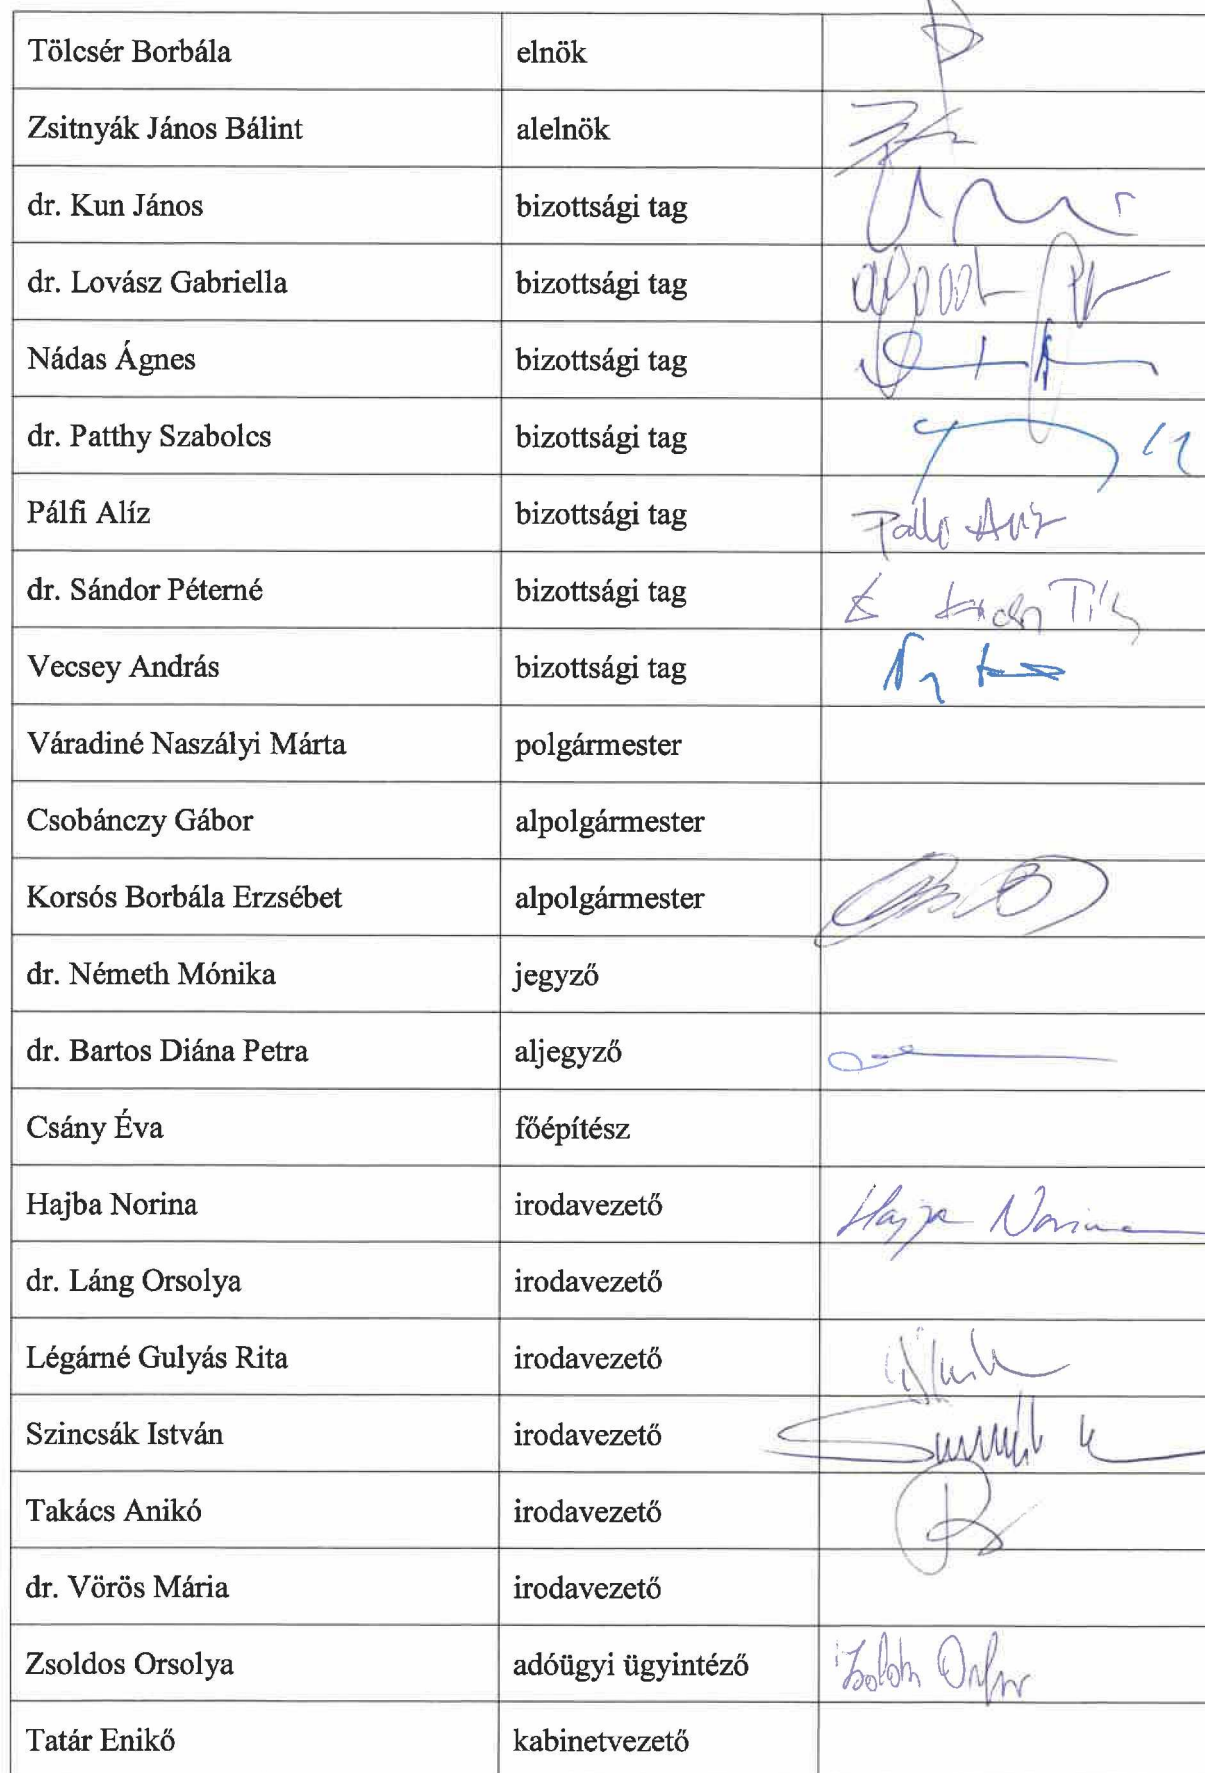 Tölcsér Borbála elnök
Zsitnyák János Bálint alelnök
dr. Kun János bizottsági tag
dr. Lovász Gabriella bizottsági tag
Nádas Ágnes bizottsági tag
dr. Patthy Szabolcs bizottsági tag
Pálfi Alíz bizottsági tag
dr. Sándor Péterné bizottsági tag
Vecsey András bizottsági tag
Váradiné Naszályi Márta polgármester
Csobánczy Gábor alpolgármester
Korsós Borbála Erzsébet alpolgármester
dr. Németh Mónika jegyző
dr. Bartos Diána Petra aljegyző
Csány Éva főépítész
Hajba Norina irodavezető Hajba Norina
dr. Láng Orsolya irodavezető
Légárné Gulyás Rita irodavezető
Szincsák István irodavezető
Takács Anikó irodavezető
dr. Vörös Mária irodavezető
Zsoldos Orsolya adóügyi ügyintéző
Tatár Enikő kabinetvezető